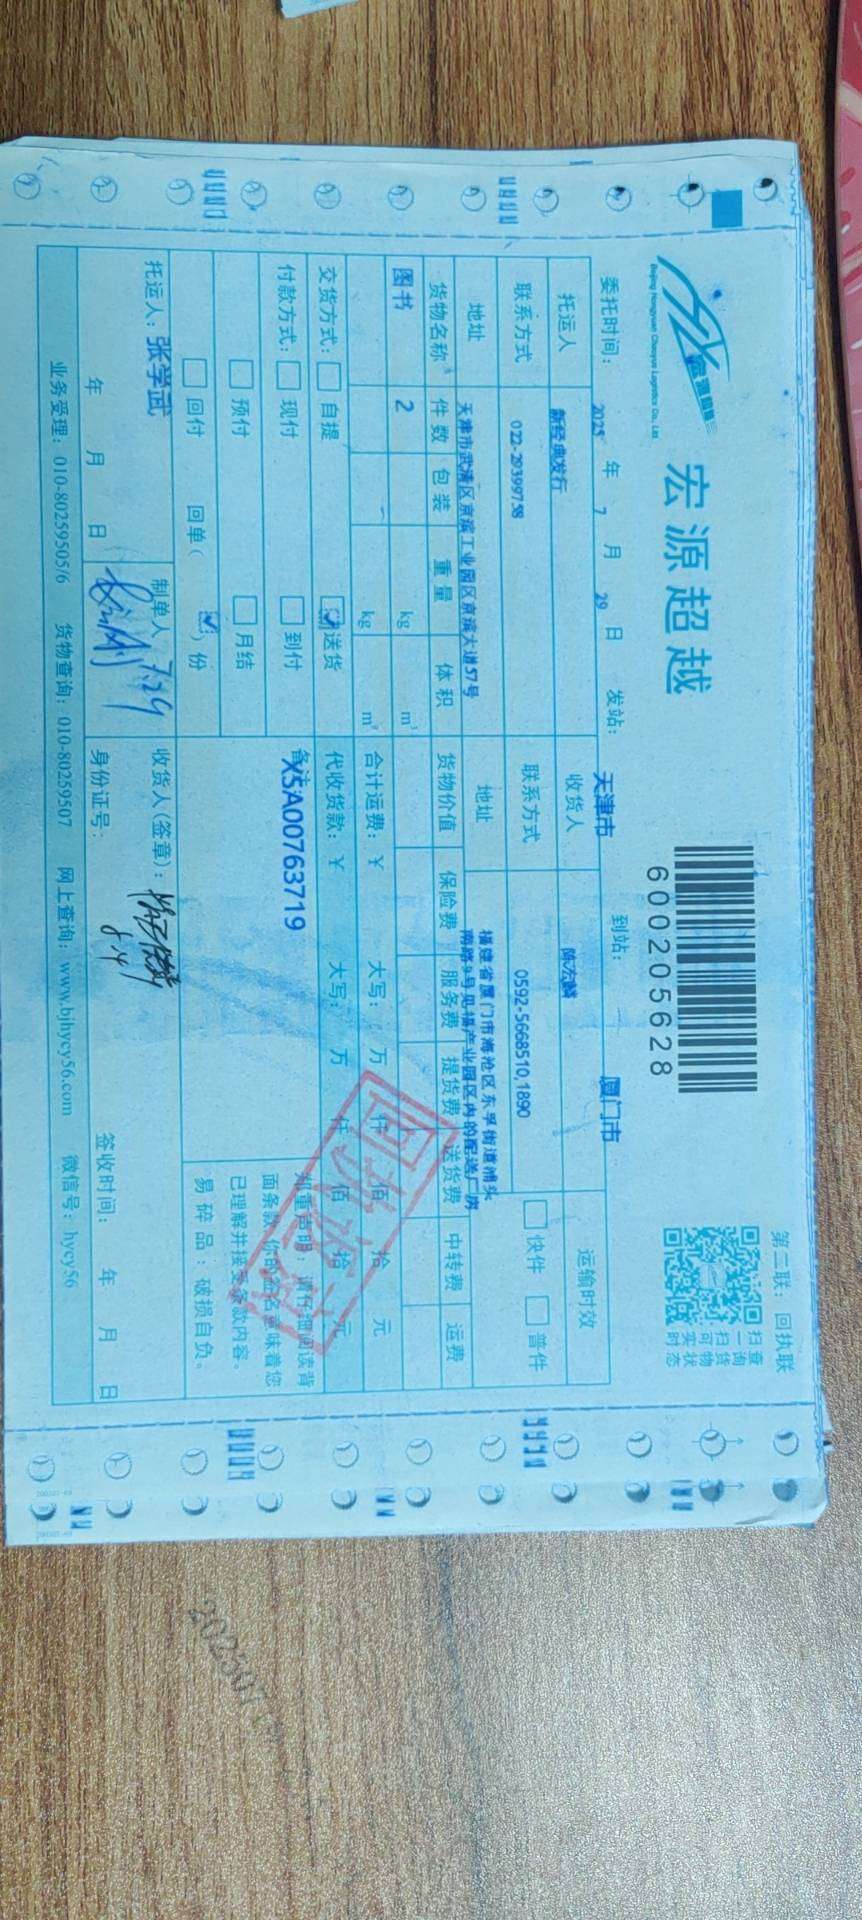 第二联：回执联
Beijing Hongyuan Chaoyue Logistics Co., Ltd.
宏源超越
600205628
扫一扫
查询货物
可实时状态
委托时间： 2025 年 7 月 29 日 发站： 天津市 到站： 厦门市
托运人 新经典发行 收货人 陈宏麟 运输时效
联系方式 022-29399758 联系方式 0592-5668510,1890 快件 普件
地址 天津市武清区京滨工业园区京滨大道57号 地址 福建省厦门市海沧区东孚街道浦头
南路9号见福产业园区内的配送厂房
货物名称 件数 包装 重量 体积 货物价值 保险费 服务费 提货费 送货费 中转费 运费
图书 2 kg m³
kg m³
合计运费：￥ 大写： 万 仟 佰 拾 元
交货方式： 自提 送货 代收货款：￥ 大写： 万 仟 佰 拾 元
付款方式： 现付 到付 备注
XSA00763719
预付 月结
回付 回单（ ）份
郑重声明：请仔细阅读背
面条款，您的签名意味着您
已理解并接受条款内容。
易碎品：破损自负。
托运人：张学武 制单人 7.29 收货人（签章）：
年 月 日 身份证号： 8.4 签收时间： 年 月 日
业务受理：010-80259505/6 货物查询：010-80259507 网上查询：www.bjhycy56.com 微信号：hycy56